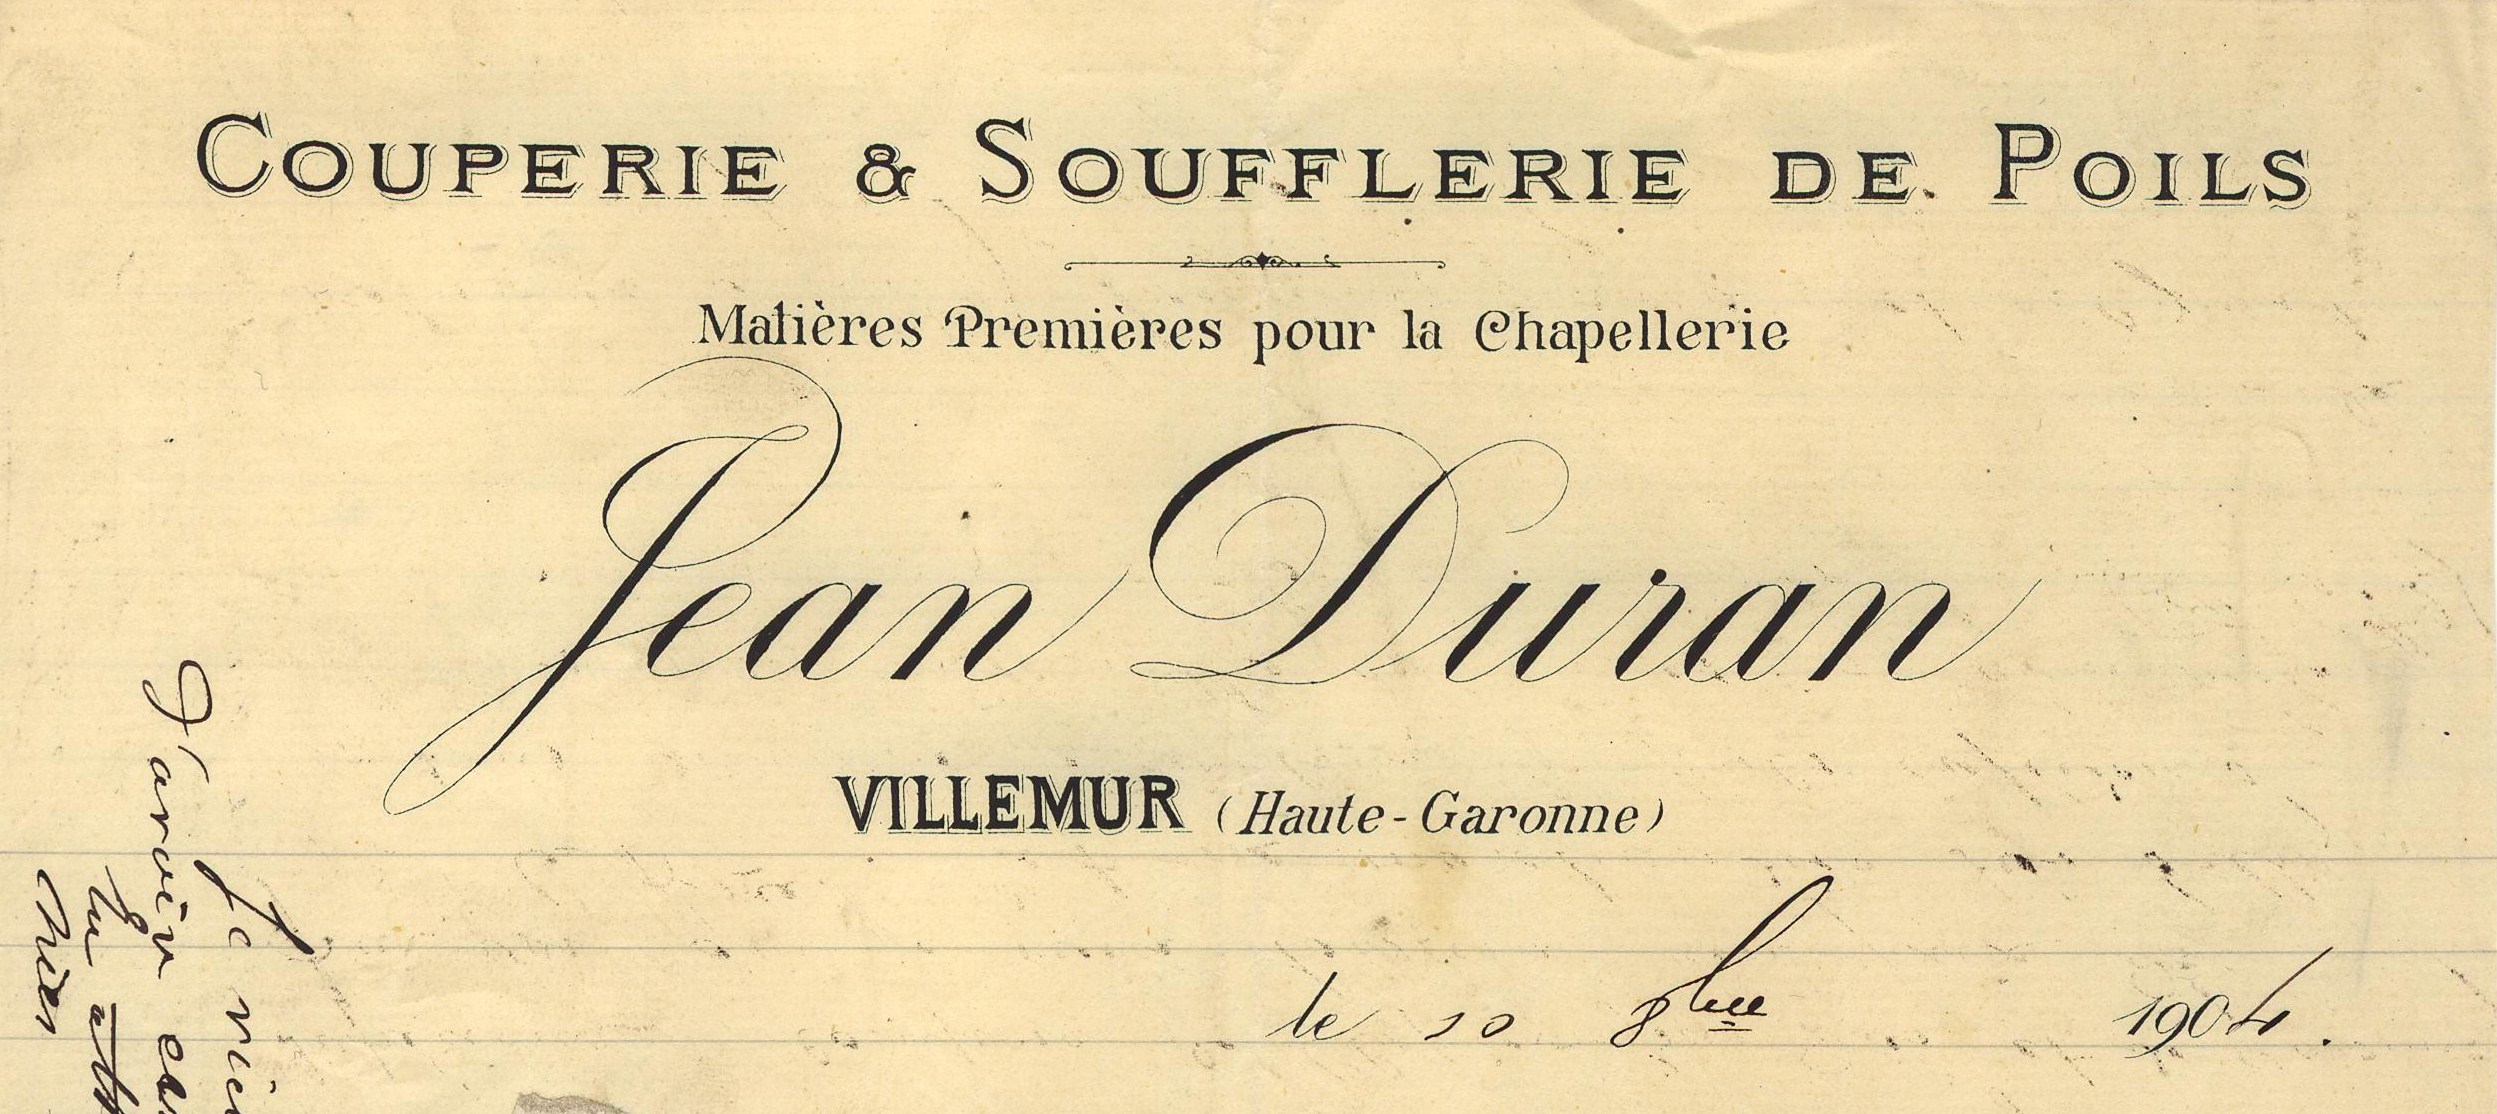 COUPERIE & SOUFFLERIE DE POILS
Matières Premières pour la Chapellerie
Jean Duran
VILLEMUR (Haute-Garonne)
le 10 8bre 1904.
Je vien
D'avoir